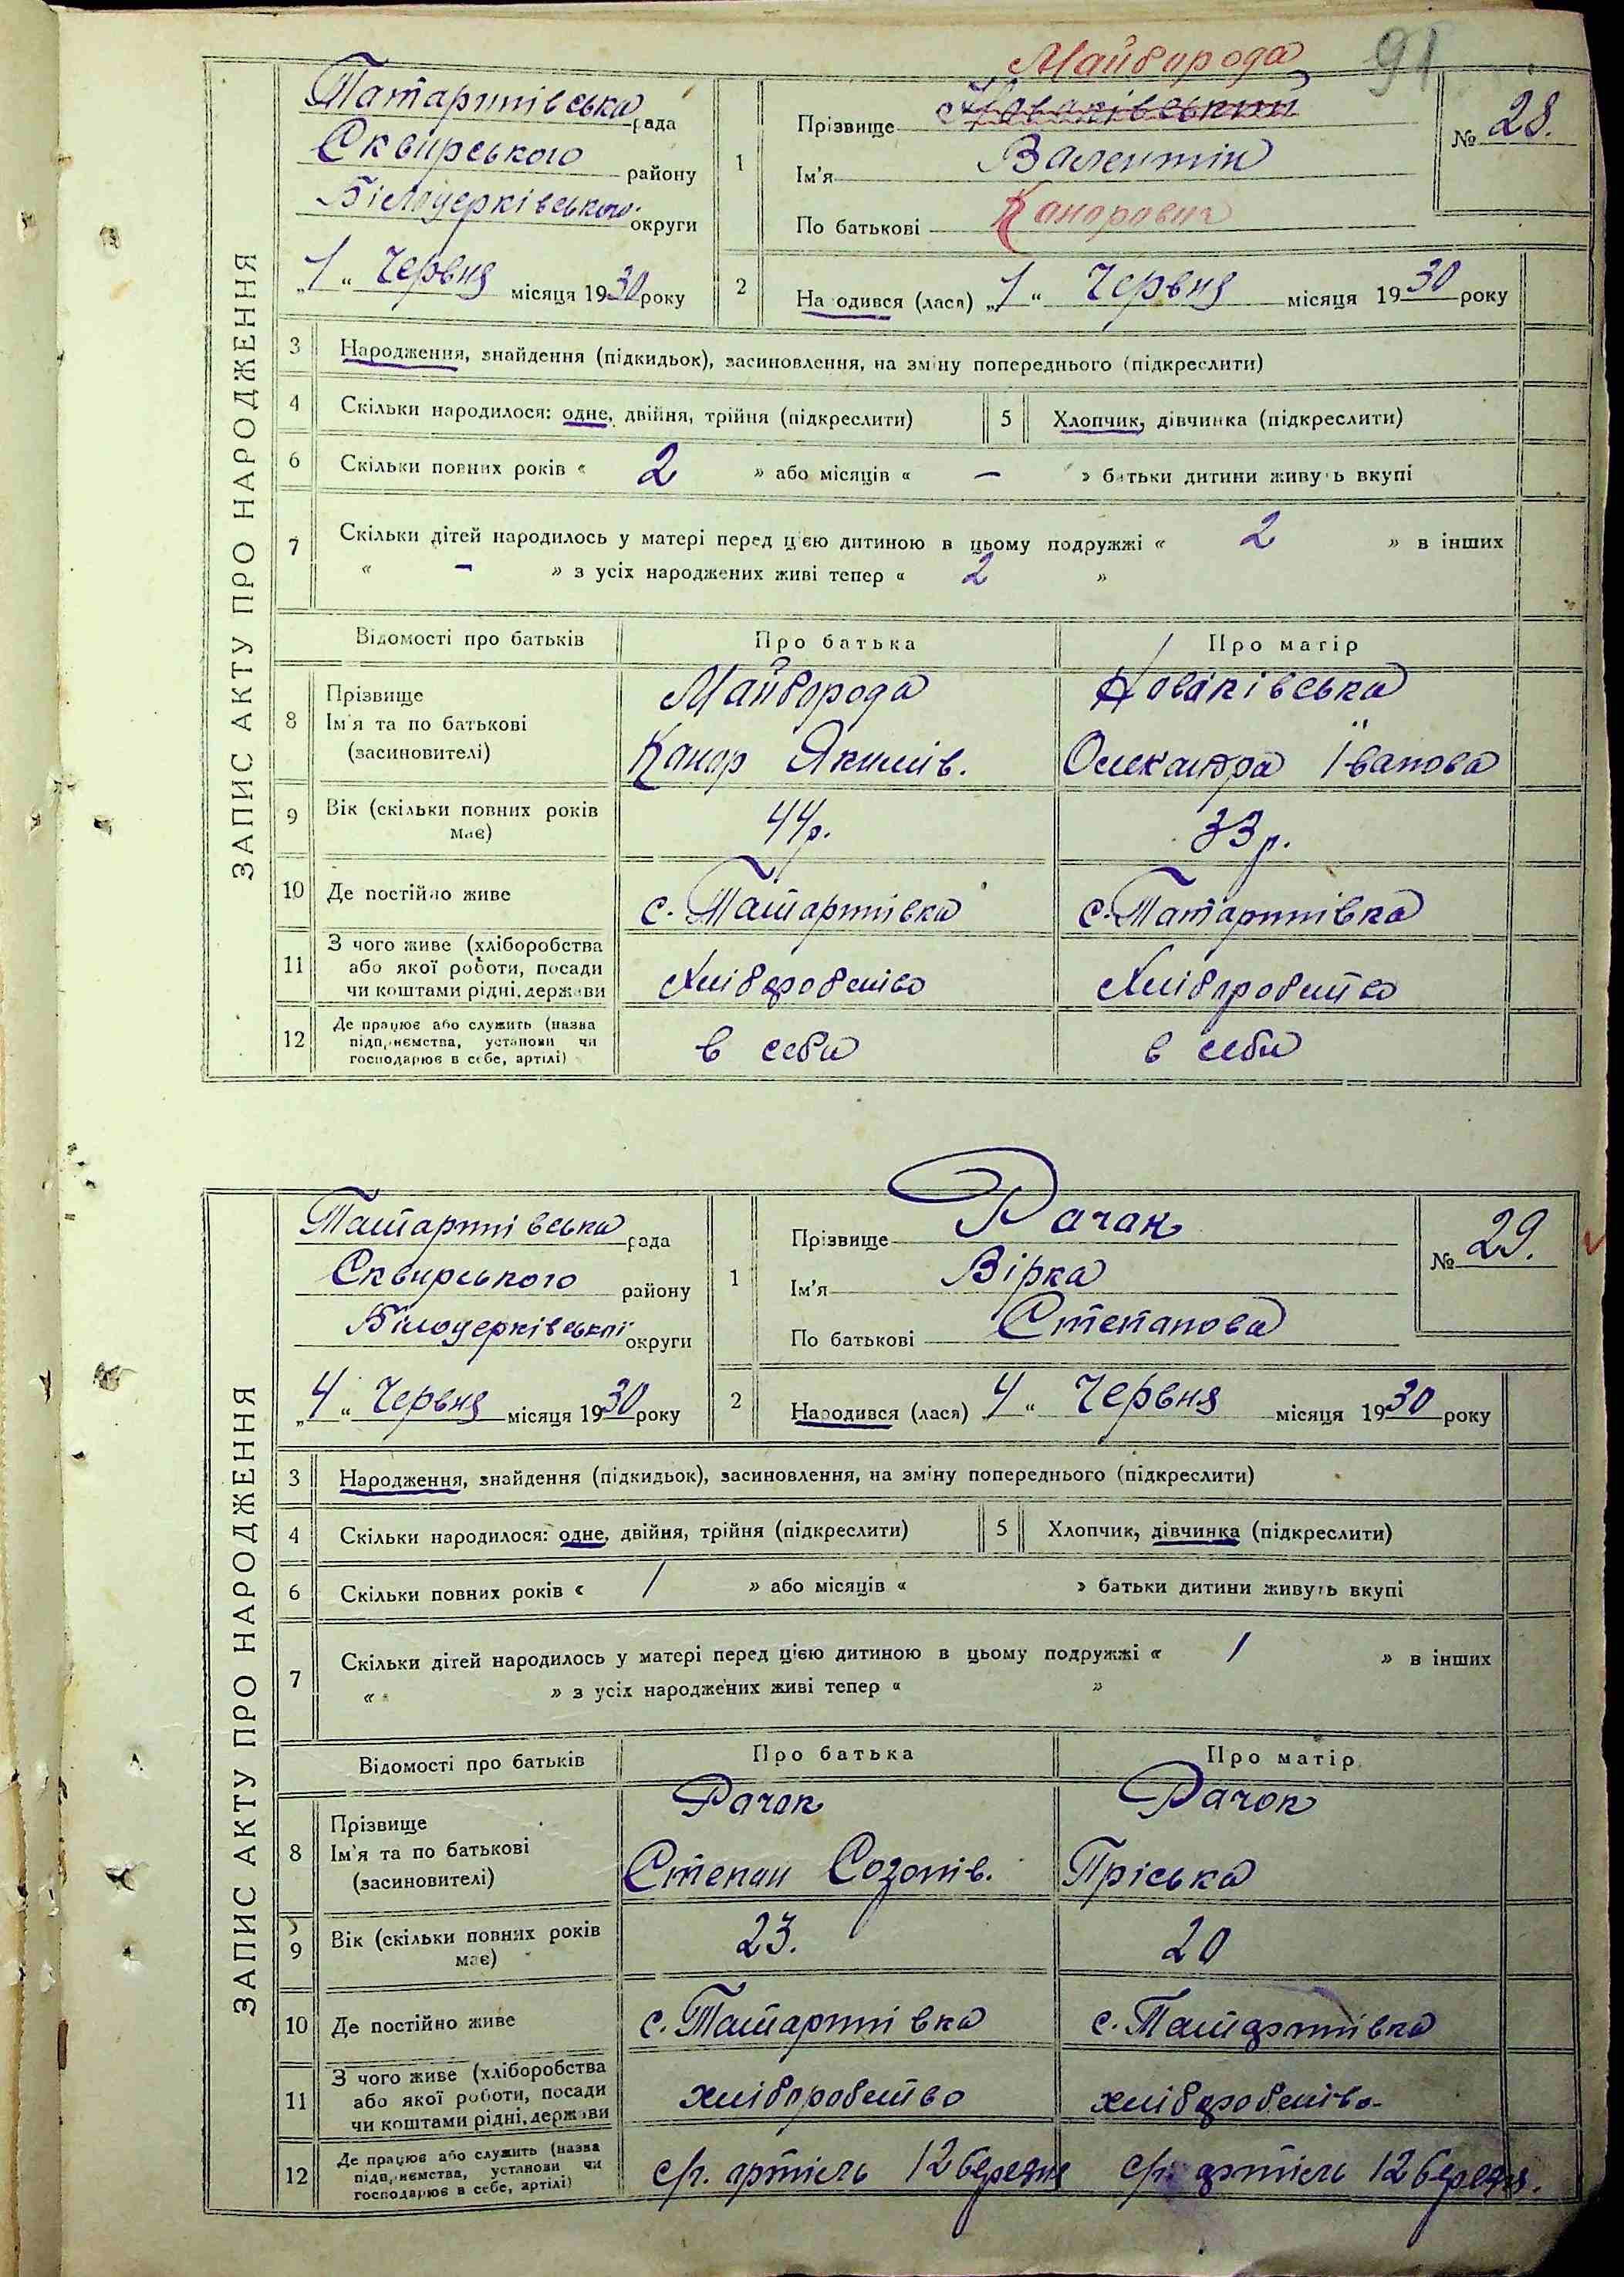 91
ЗАПИС АКТУ ПРО НАРОДЖЕННЯ
Татаринівська рада
Сквирського району
Білоцерківського округи
„1“ Червня місяця 1930 року
1
Майборода
Прізвище Новаківський
Ім'я Валентин
По батькові Канорович
№ 28.
2 Народився (лася) „1“ Червня місяця 1930 року
3 Народження, знайдення (підкидьок), засиновлення, на зміну попереднього (підкреслити)
4 Скільки народилося: одне, двійня, трійня (підкреслити) 5 Хлопчик, дівчинка (підкреслити)
6 Скільки повних років « 2 » або місяців « – » батьки дитини живуть вкупі
7 Скільки дітей народилось у матері перед цією дитиною в цьому подружжі « 2 » в інших
« – » з усіх народжених живі тепер « 2 »
Відомості про батьків Про батька Про матір
8 Прізвище Майборода Новаківська
Ім'я та по батькові
(засиновителі) Канор Якимів. Олександра Іванова
9 Вік (скільки повних років має) 44р. 33р.
10 Де постійно живе с. Татаринівка с. Татаринівка
11 З чого живе (хліборобства
або якої роботи, посади
чи коштами рідні, держави Хліборобство Хліборобство
12 Де працює або служить (назва
підприємства, установи чи
господарює в себе, артілі) в себе в себе
ЗАПИС АКТУ ПРО НАРОДЖЕННЯ
Татаринівська рада
Сквирського району
Білоцерківської округи
„4“ Червня місяця 1930 року
1
Прізвище Рачок
Ім'я Вірка
По батькові Степанова
№ 29.
2 Народився (лася) 4“ Червня місяця 1930 року
3 Народження, знайдення (підкидьок), засиновлення, на зміну попереднього (підкреслити)
4 Скільки народилося: одне, двійня, трійня (підкреслити) 5 Хлопчик, дівчинка (підкреслити)
6 Скільки повних років « / » або місяців « » батьки дитини живуть вкупі
7 Скільки дітей народилось у матері перед цією дитиною в цьому подружжі « / » в інших
« » з усіх народжених живі тепер « »
Відомості про батьків Про батька Про матір
8 Прізвище Рачок Рачок
Ім'я та по батькові
(засиновителі) Степан Созонів. Пріська
9 Вік (скільки повних років має) 23. 20
10 Де постійно живе с. Татаринівка с. Татаринівка
11 З чого живе (хліборобства
або якої роботи, посади
чи коштами рідні, держави хліборобство хліборобство
12 Де працює або служить (назва
підприємства, установи чи
господарює в себе, артілі) с/г. артіль 12 березня с/г. артіль 12 березня.